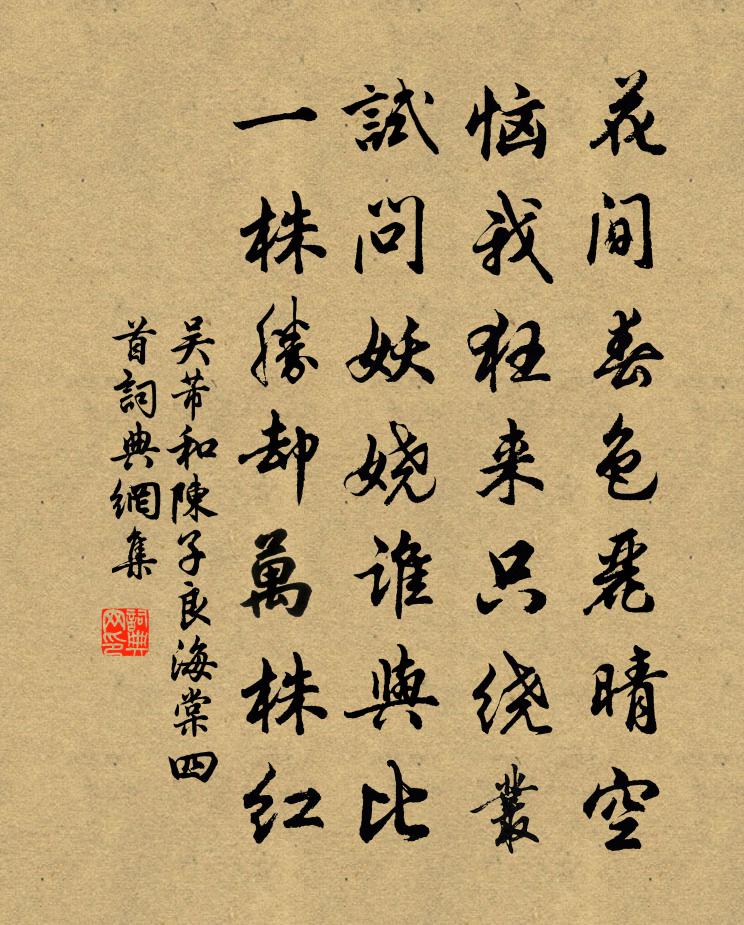 花间春色丽晴空
恼我狂来只绕丛
試问妖娆谁與比
一株勝却萬株红
吴芾和陳子良海棠四
首詞典網集
詞典网印